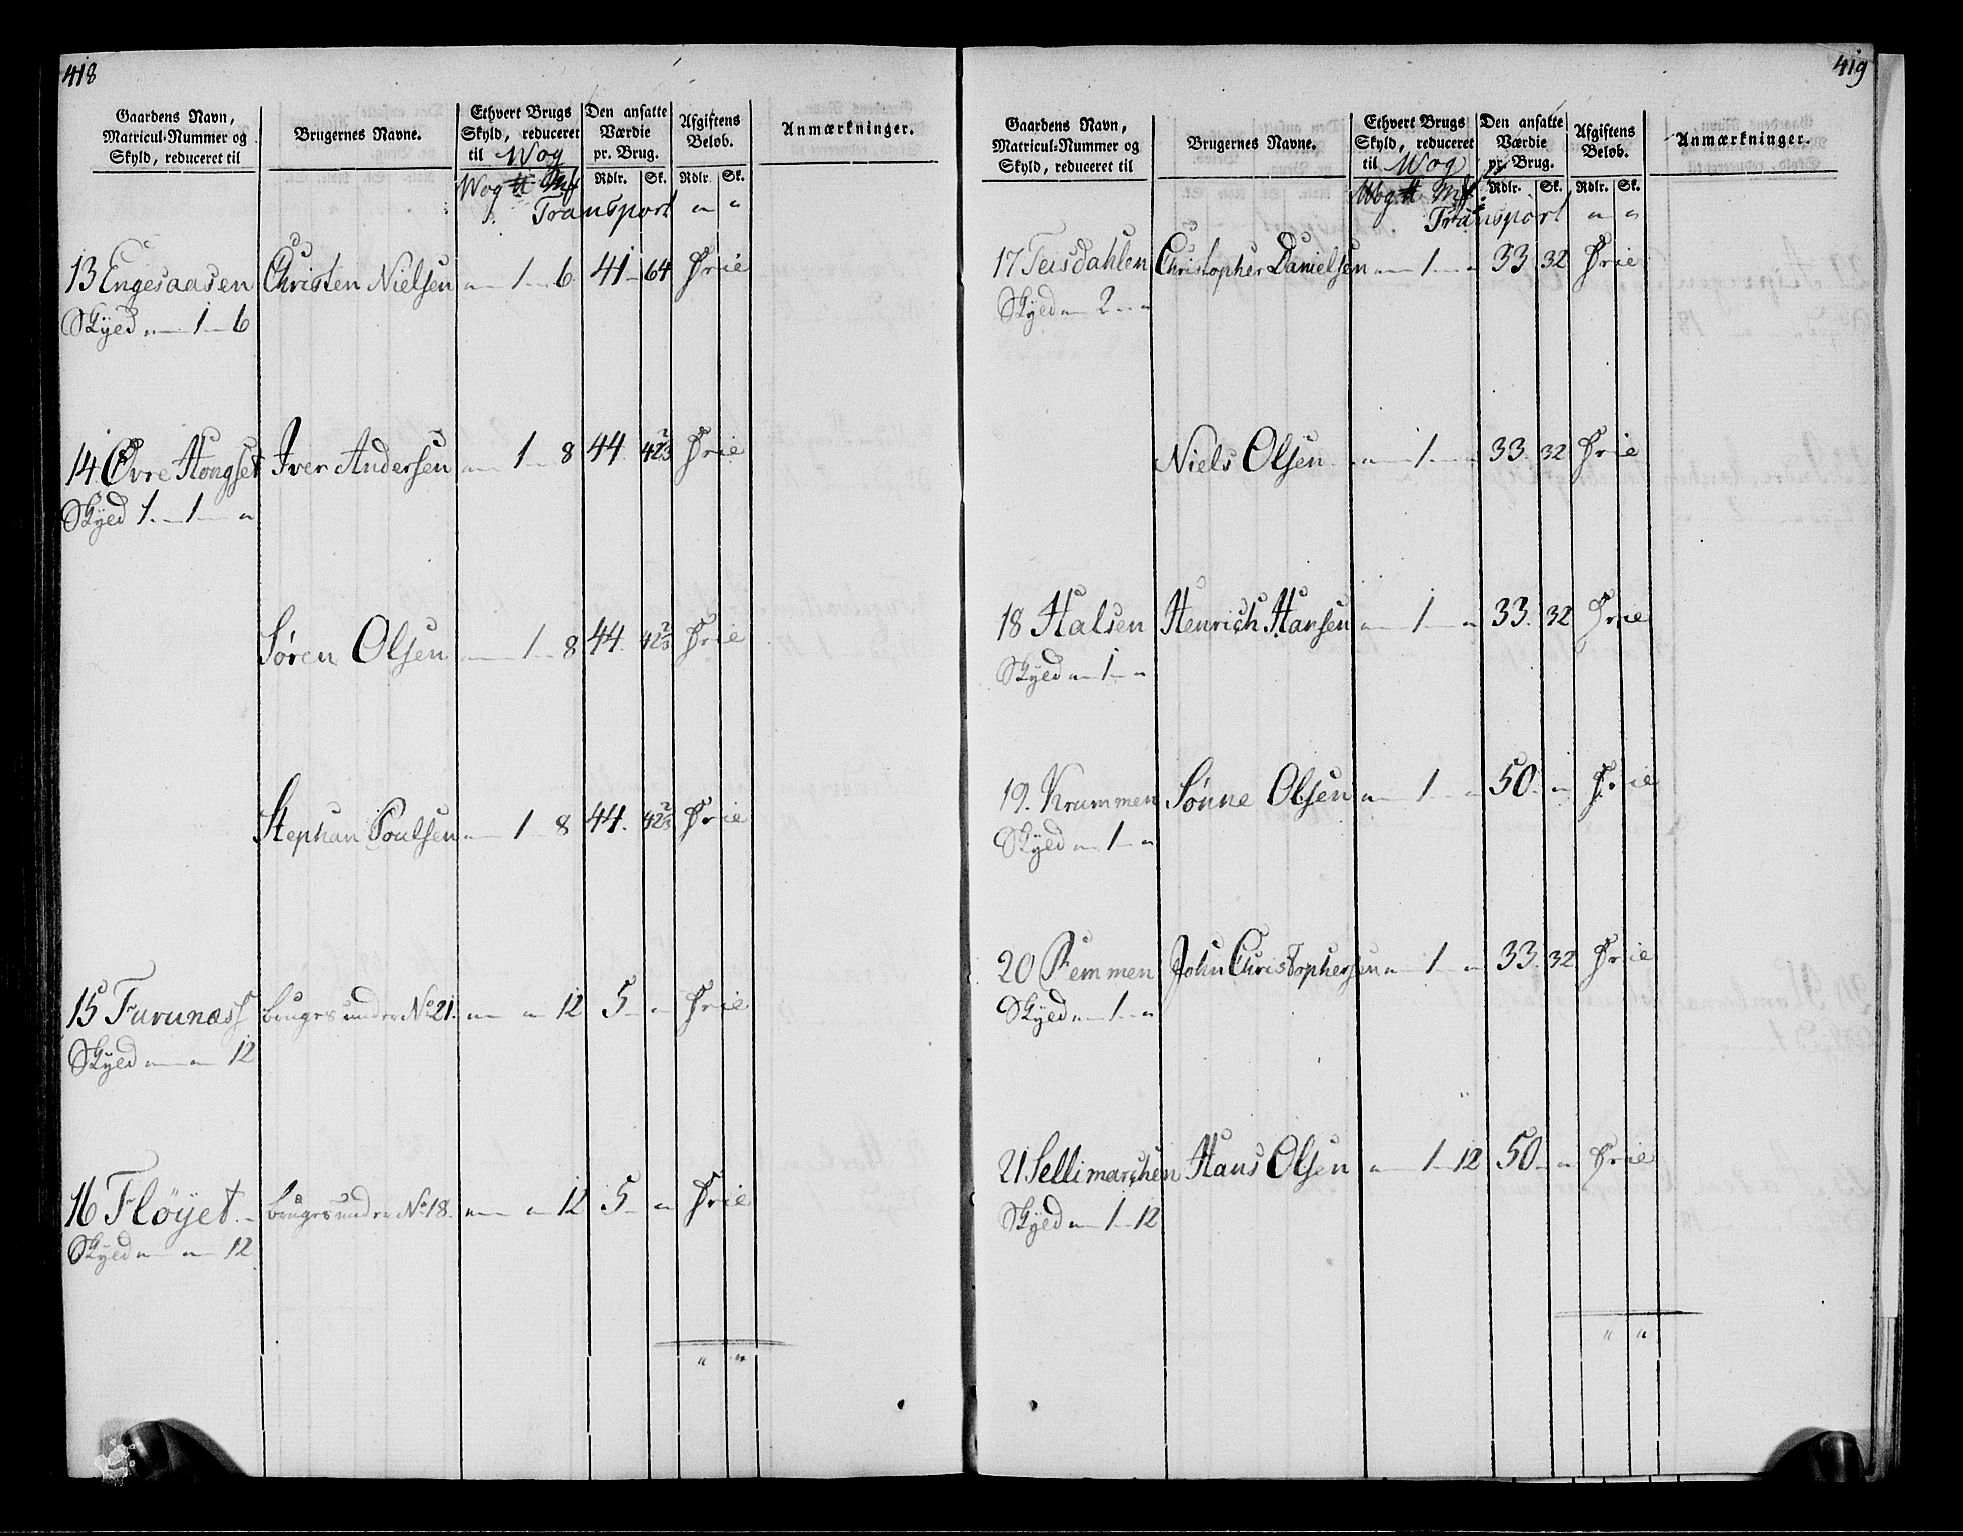 418
Gaardens Navn, Matricul-Nummer og Skyld, reduceret til
Brugernes Navne.
Ethvert Brugs Skyld, reduceret til Wog
Den ansatte Værdie pr. Brug.
Afgiftens Beløb.
Anmærkninger.
Wog ℔ Mk Rdlr. Sk. Rdlr. Sk.
Transport " "
13 Engesaasen Christen Nielsen " 1 6 41 64 Frie
Skyed " 1 6
14 Øvre Hongset Iver Andersen " 1 8 44 42 2/3 Frie
Skyed 1 1 "
Søren Olsen 1 8 44 42 2/3 Frie
Stephan Poulsen " 1 8 44 42 2/3 Frie
15 Furunæss bruges under No 21. " " 12 5 " Frie
Skyed " " 12
16 Fløyet bruges under No 18. " " 12 5 " Frie
Skyed " " 12
" "
419
Gaardens Navn, Matricul-Nummer og Skyld, reduceret til
Brugernes Navne.
Ethvert Brugs Skyld, reduceret til Wog
Den ansatte Værdie pr. Brug.
Afgiftens Beløb.
Anmærkninger.
Wog ℔ Mk Rdlr. Sk. Rdlr. Sk.
Transport " "
17 Teisdahlen Christopher Danielsen " 1 " 33 32 Frie
Skyed " 2 "
Niels Olsen " 1 " 33 32 Frie
18 Halsen Henrich Hansen " 1 " 33 32 Frie
Skyed " 1 "
19. Krummen Sønne Olsen " 1 " 50 " Frie
Skyed " 1 "
20 Remmen John Christophersen " 1 " 33 32 Frie
Skyed " 1 "
21 Sellimarchen Hans Olsen " 1 12 50 " Frie
Skyed " 1 12
" "